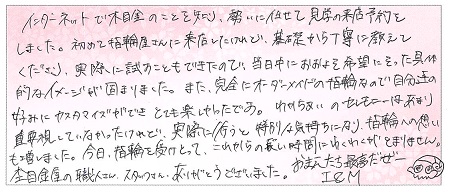 インターネットで木目金のことを知り、勢いに任せて見学の来店予約を
しました。初めて指輪屋さんに来店したけれど、基礎から丁寧に教えて
くださり、実際に試すこともできたので、当日中におおよそ希望にそった具体
的なイメージが固まりました。また、完全にオーダーメイドの指輪なので自分達の
好みにカスタマイズができとても楽しかったです。わからないのセレモニーはあまり
重要視していなかったけれど、実際に行うと特別な気持ちになり、指輪への想い
も増しました。今日、指輪を受けとって、これからの長い時間にわくわくがとまりません。
杢目金屋の職人さん、スタッフさん、ありがとうございました。
おまえたち最高だぜー
I&M